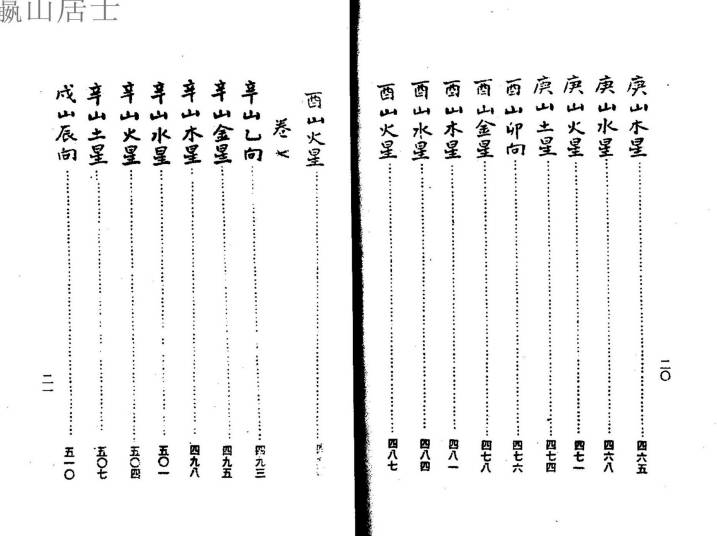 嬴山居士
庚山木星 四六五
庚山水星 四六八
庚山火星 四七一
庚山土星 四七四
酉山卯向 四七六
酉山金星 四七八
酉山木星 四八一
酉山水星 四八四
酉山火星 四八七
二〇
酉山火星
卷七
辛山乙向 四九三
辛山金星 四九五
辛山木星 四九八
辛山水星 五〇一
辛山火星 五〇四
辛山土星 五〇七
戍山辰向 五一〇
二一